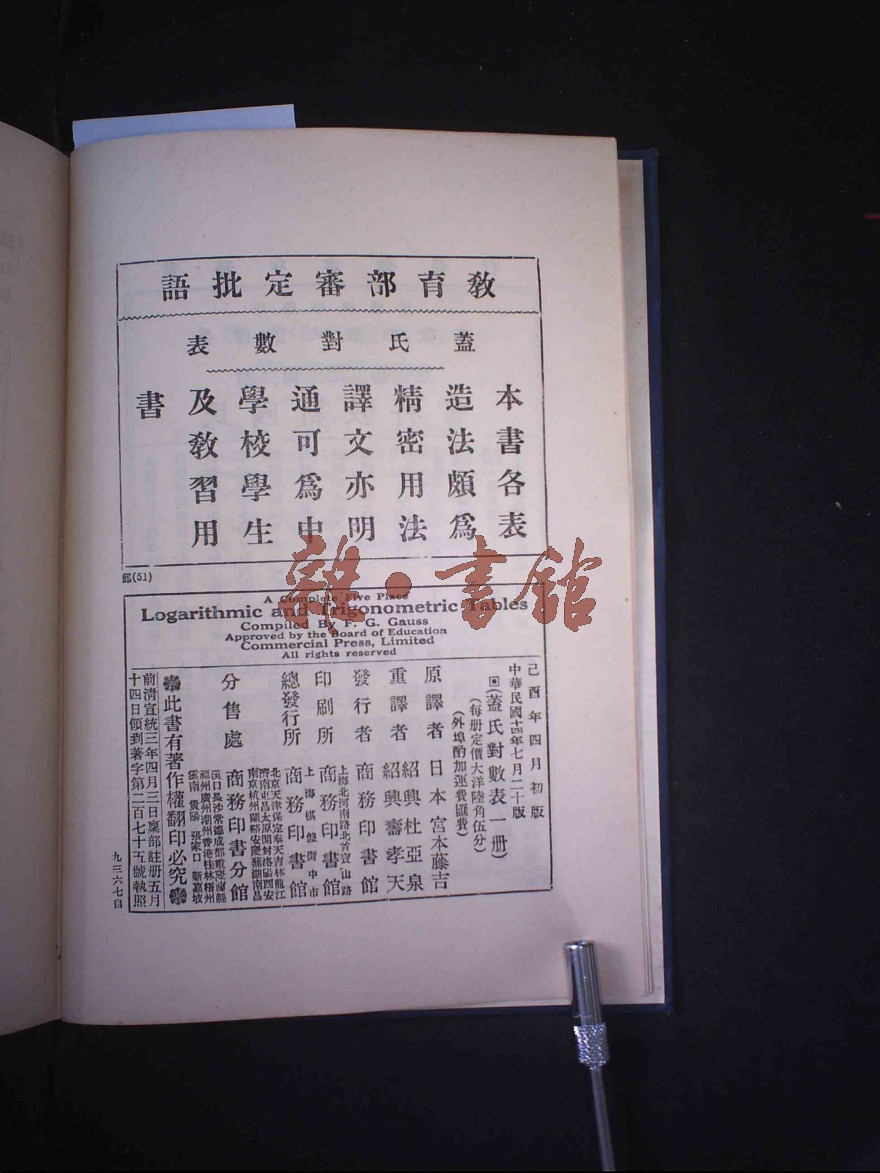 教育部審定批語
蓋氏對數表
本書各表
造法頗爲
精密用法
譯文亦明
通可爲中
學校學生
及教習用
書
部(51)
A Complete Five Place
Logarithmic and Trigonometric Tables
Compiled By F. G. Gauss
Approved by the Board of Education
Commercial Press, Limited
All rights reserved
己酉年四月初版
中華民國十四年七月二十版
(蓋氏對數表一册)
(每册定價大洋陸角伍分)
(外埠酌加運費匯費)
原譯者 日本宮本藤吉
重譯者 紹興杜亞泉
紹興壽孝天
發行者 商務印書館
印刷所 上海北河南路北首寶山路
商務印書館
總發行所 上海棋盤街中市
商務印書館
分售處 商務印書分館
北京天津保定奉天吉林龍江
濟南太原開封洛陽西安
南京杭州蘭谿安慶蕪湖南昌
漢口長沙常德成都重慶瀘縣
福州廣州潮州香港桂林梧州
雲南貴陽張家口新嘉坡
此書有著作權翻印必究
前清宣統三年四月三日稟部註册五月
十四日領到著字第二百七十五號執照
九三六七自
雜·書館